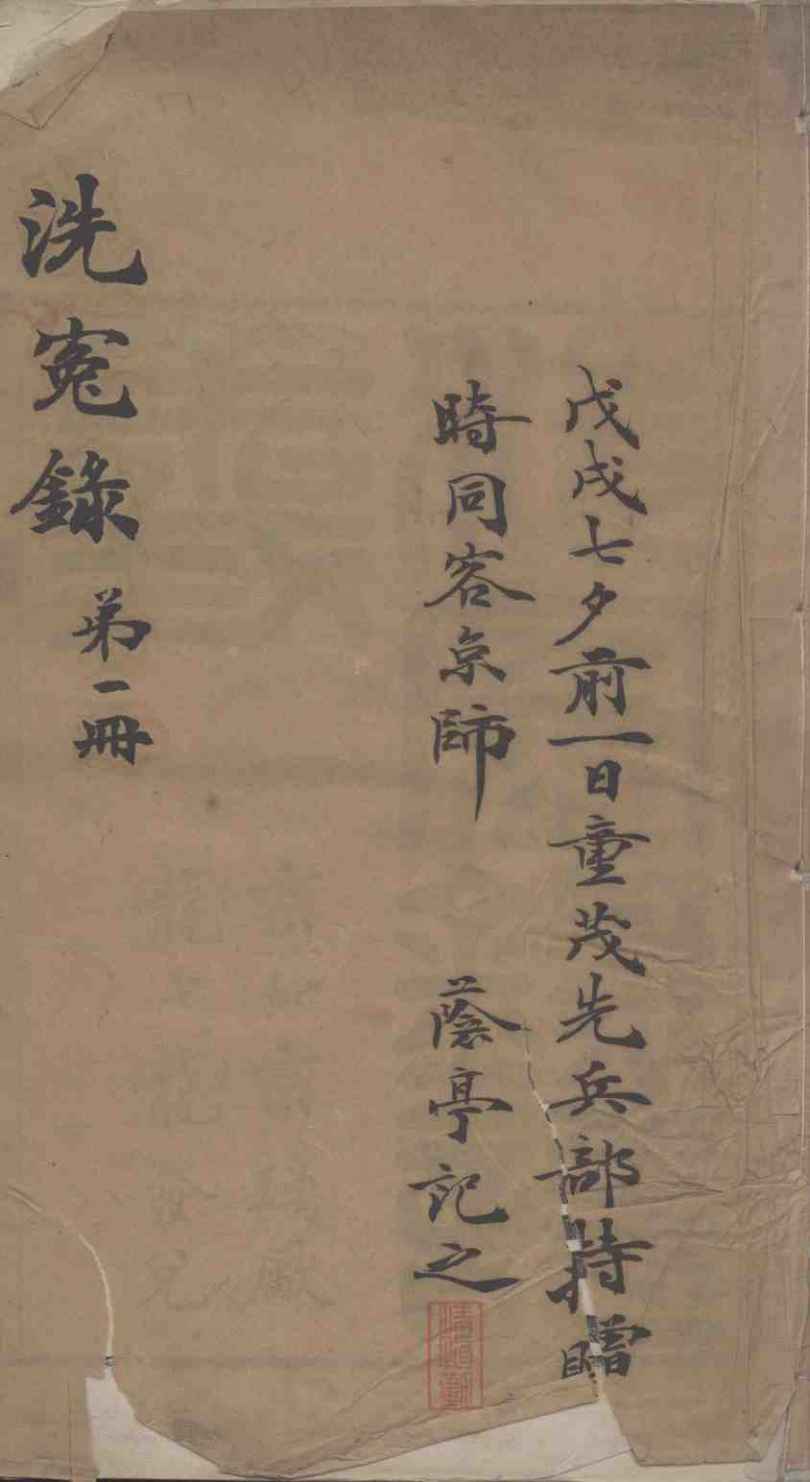 戊戌七夕前一日童茂先兵部持贈
時同客京師　蔭亭記之
洗寃錄 弟一冊